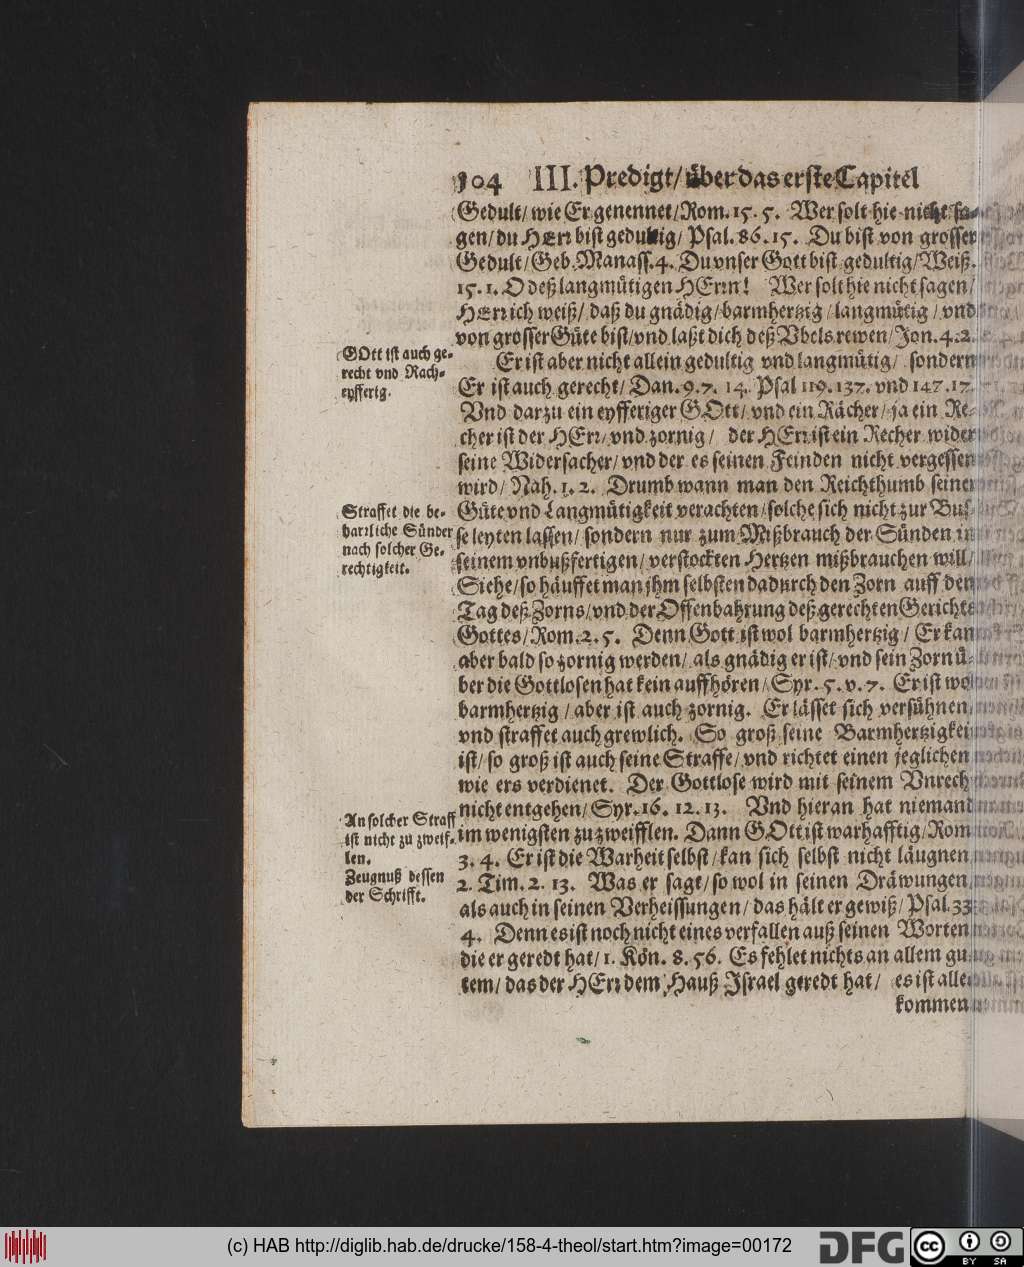 104 III. Predigt/ über das erste Capitel
Gedult/ wie Er genennet/ Rom. 15. 5. Wer solt hie nicht sa-
gen/ du HErr bist gedultig/ Psal. 86. 15. Du bist von grosser
Gedult/ Geb. Manass. 4. Du vnser Gott bist gedultig/ Weiß.
15. 1. O deß langmütigen HErrn! Wer solt hie nicht sagen/
HErr ich weiß/ daß du gnädig/ barmhertzig/ langmütig/ vnd
von grosser Güte bist/ vnd laßt dich deß Vbels rewen/ Jon. 4. 2.
GOtt ist auch ge-
recht vnd Rach-
eyfferig.
Er ist aber nicht allein gedultig vnd langmütig/ sondern
Er ist auch gerecht/ Dan. 9. 7. 14. Psal 119. 137. vnd 147. 17.
Vnd darzu ein eyfferiger GOtt/ vnd ein Rächer/ ja ein Re-
cher ist der HErr/ vnd zornig/ der HErr ist ein Recher wider
seine Widersacher/ vnd der es seinen Feinden nicht vergessen
wird/ Nah. 1. 2. Drumb wann man den Reichthumb seiner
Straffet die be-
harrliche Sünder
nach solcher Ge-
rechtigkeit.
Güte vnd Langmütigkeit verachten/ solche sich nicht zur Bus-
se leyten lassen/ sondern nur zum Mißbrauch der Sünden in
seinem vnbußfertigen/ verstockten Hertzen mißbrauchen will/
Siehe/ so häuffet man jhm selbsten dadurch den Zorn auff den
Tag deß Zorns/ vnd der Offenbahrung deß gerechten Gerichts
Gottes/ Rom. 2. 5. Denn Gott ist wol barmhertzig/ Er kan
aber bald so zornig werden/ als gnädig er ist/ vnd sein Zorn ü-
ber die Gottlosen hat kein auffhören/ Syr. 5. v. 7. Er ist wol
barmhertzig/ aber ist auch zornig. Er lässet sich versühnen
vnd straffet auch grewlich. So groß seine Barmhertzigkeit
ist/ so groß ist auch seine Straffe/ vnd richtet einen jeglichen
wie ers verdienet. Der Gottlose wird mit seinem Vnrecht
nicht entgehen/ Syr. 16. 12. 13. Vnd hieran hat niemand
An solcher Straff
ist nicht zu zweif-
len.
Zeugnuß dessen
der Schrifft.
im wenigsten zu zweifflen. Dann GOtt ist warhafftig/ Rom
3. 4. Er ist die Warheit selbst/ kan sich selbst nicht läugnen
2. Tim. 2. 13. Was er sagt/ so wol in seinen Dräwungen/
als auch in seinen Verheissungen/ das hält er gewiß/ Psal. 33
4. Denn es ist noch nicht eines verfallen auß seinen Worten
die er geredt hat/ 1. Kön. 8. 56. Es fehlet nichts an allem gu-
tem/ das der HErr dem Hauß Israel geredt hat/ es ist alles
kommen
(c) HAB http://diglib.hab.de/drucke/158-4-theol/start.htm?image=00172
DFG
cc
BY SA